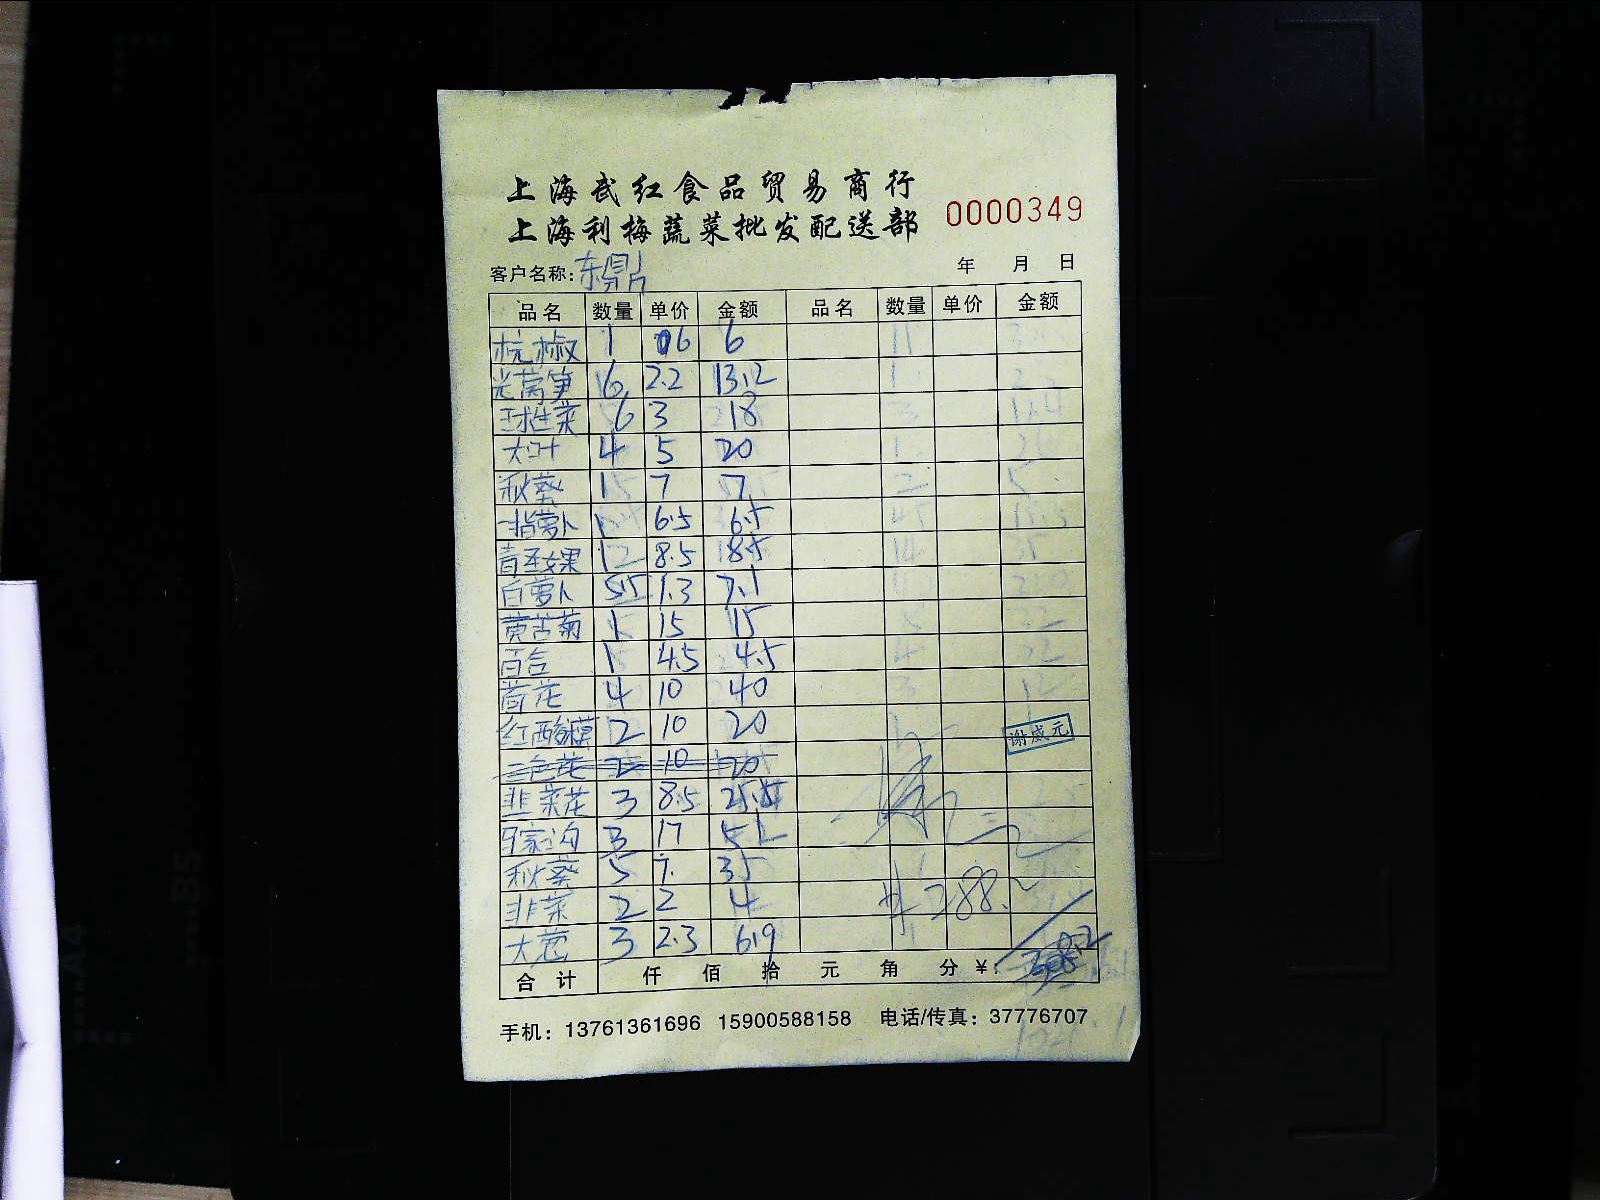 上海武红食品贸易商行
上海利梅蔬菜批发配送部 0000349
客户名称: 东鼎 年 月 日
品名 数量 单价 金额 品名 数量 单价 金额
杭椒 1 6 6
光莴笋 6 2.2 13.2
球生菜 6 3 18
大叶 4 5 20
秋葵 1 7 7
指萝卜 1 6.5 6.5
青圣女果 1 8.5 8.5
白萝卜 5.5 1.3 7.1
黄苦菊 1 15 15
百合 1 4.5 4.5
荷花 4 10 40
红酸模 2 10 20
谢威元
三色花 2 10 20
韭菜花 3 8.5 25.5
3 17 51
秋葵 5 7. 35
韭菜 2 2 4
288.2
大葱 3 2.3 6.9
合计 仟 佰 拾 元 角 分 ¥:
手机: 13761361696 15900588158 电话/传真: 37776707